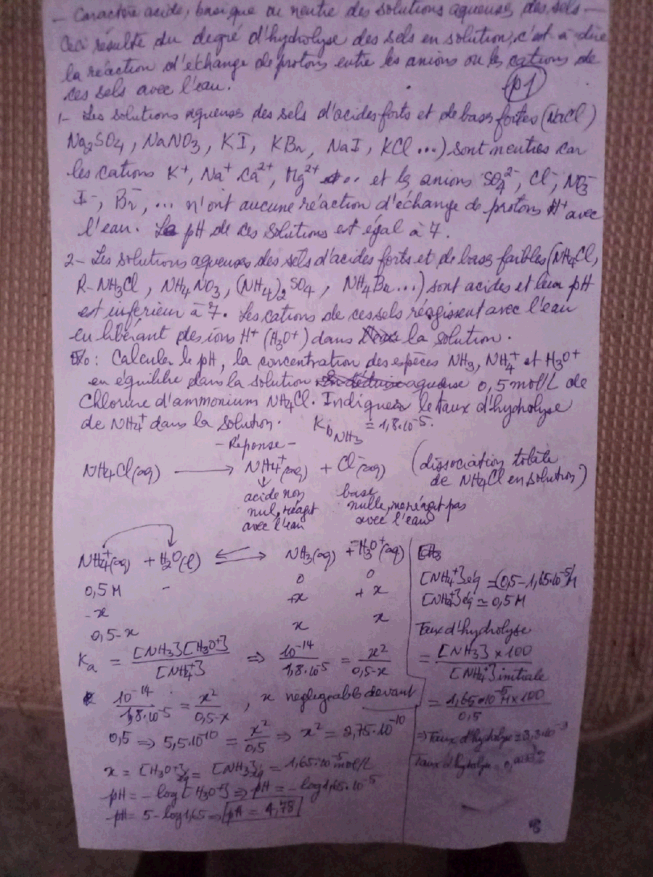 - Caractère acide, basique ou neutre des solutions aqueuses des sels -
Ceci résulte du degré d'hydrolyse des sels en solution, c'est à dire
la réaction d'échange de protons entre les anions ou les cations de
ces sels avec l'eau. (p1)
1- Les solutions aqueuses des sels d'acides forts et de bases fortes (NaCl)
Na₂SO₄, NaNO₃, KI, KBr, NaI, KCl ...) sont neutres car
les cations K⁺, Na⁺ Ca²⁺, Mg²⁺ ... et les anions SO₄²⁻, Cl⁻, NO₃⁻
I⁻, Br⁻, ... n'ont aucune réaction d'échange de protons H⁺ avec
l'eau. Le pH de ces solutions est égal à 7.
2- Les solutions aqueuses des sels d'acides forts et de bases faibles (NH₄Cl,
R-NH₃Cl, NH₄NO₃, (NH₄)₂SO₄, NH₄Br...) sont acides et leur pH
est inférieur à 7. Les cations de ces sels réagissent avec l'eau
en libérant des ions H⁺ (H₃O⁺) dans la solution.
: Calculer le pH, la concentration des espèces NH₃, NH₄⁺ et H₃O⁺
en équilibre dans la solution aqueuse 0,5 mol/L de
Chlorure d'ammonium NH₄Cl. Indiquer le taux d'hydrolyse
de NH₄⁺ dans la solution. Kb NH₃ = 1,8.10⁻⁵.
- Réponse -
NH₄Cl(aq) ⟶ NH₄⁺(aq) + Cl⁻(aq) (dissociation totale
de NH₄Cl en solution)
↓ acide non base
nul, réagit nulle, ne réagit pas
avec l'eau avec l'eau
NH₄⁺(aq) + H₂O(l) ⇌ NH₃(aq) + H₃O⁺(aq)
0,5 M - 0 0
-x +x +x
0,5-x x x
Ka = [NH₃][H₃O⁺]/[NH₄⁺] ⇒ 10⁻¹⁴/1,8.10⁻⁵ = x²/0,5-x
10⁻¹⁴/1,8.10⁻⁵ = x²/0,5-x, x négligeable devant
0,5 ⇒ 5,5.10⁻¹⁰ = x²/0,5 ⇒ x² = 2,75.10⁻¹⁰
x = [H₃O⁺]éq = [NH₃]éq = 1,65.10⁻⁵ mol/L
-pH = -log[H₃O⁺] ⇒ pH = -log1,65.10⁻⁵
-pH = 5 - log1,65 ⇒ pH = 4,78
[NH₄⁺]éq = (0,5-1,65.10⁻⁵)M
[NH₄⁺]éq ≃ 0,5M
Taux d'hydrolyse
= [NH₃] x 100/[NH₄⁺] initiale
= 1,65.10⁻⁵ M x 100/0,5
⇒ Taux d'hydrolyse = 3,3.10⁻³
Taux d'hydrolyse =